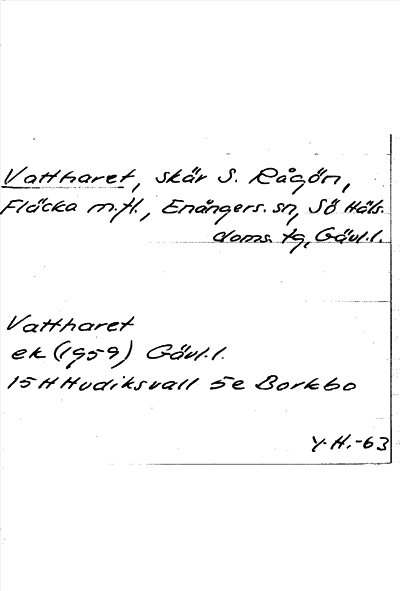 Vattharet, skär S. Rågön,
Fläcka m.fl., Enångers. sn, Sö Häls.
doms. tg, Gävl.l.
Vattharet
ek (1959) Gävl.l.
15H Hudiksvall 5e Borkbo
Y.H.-63